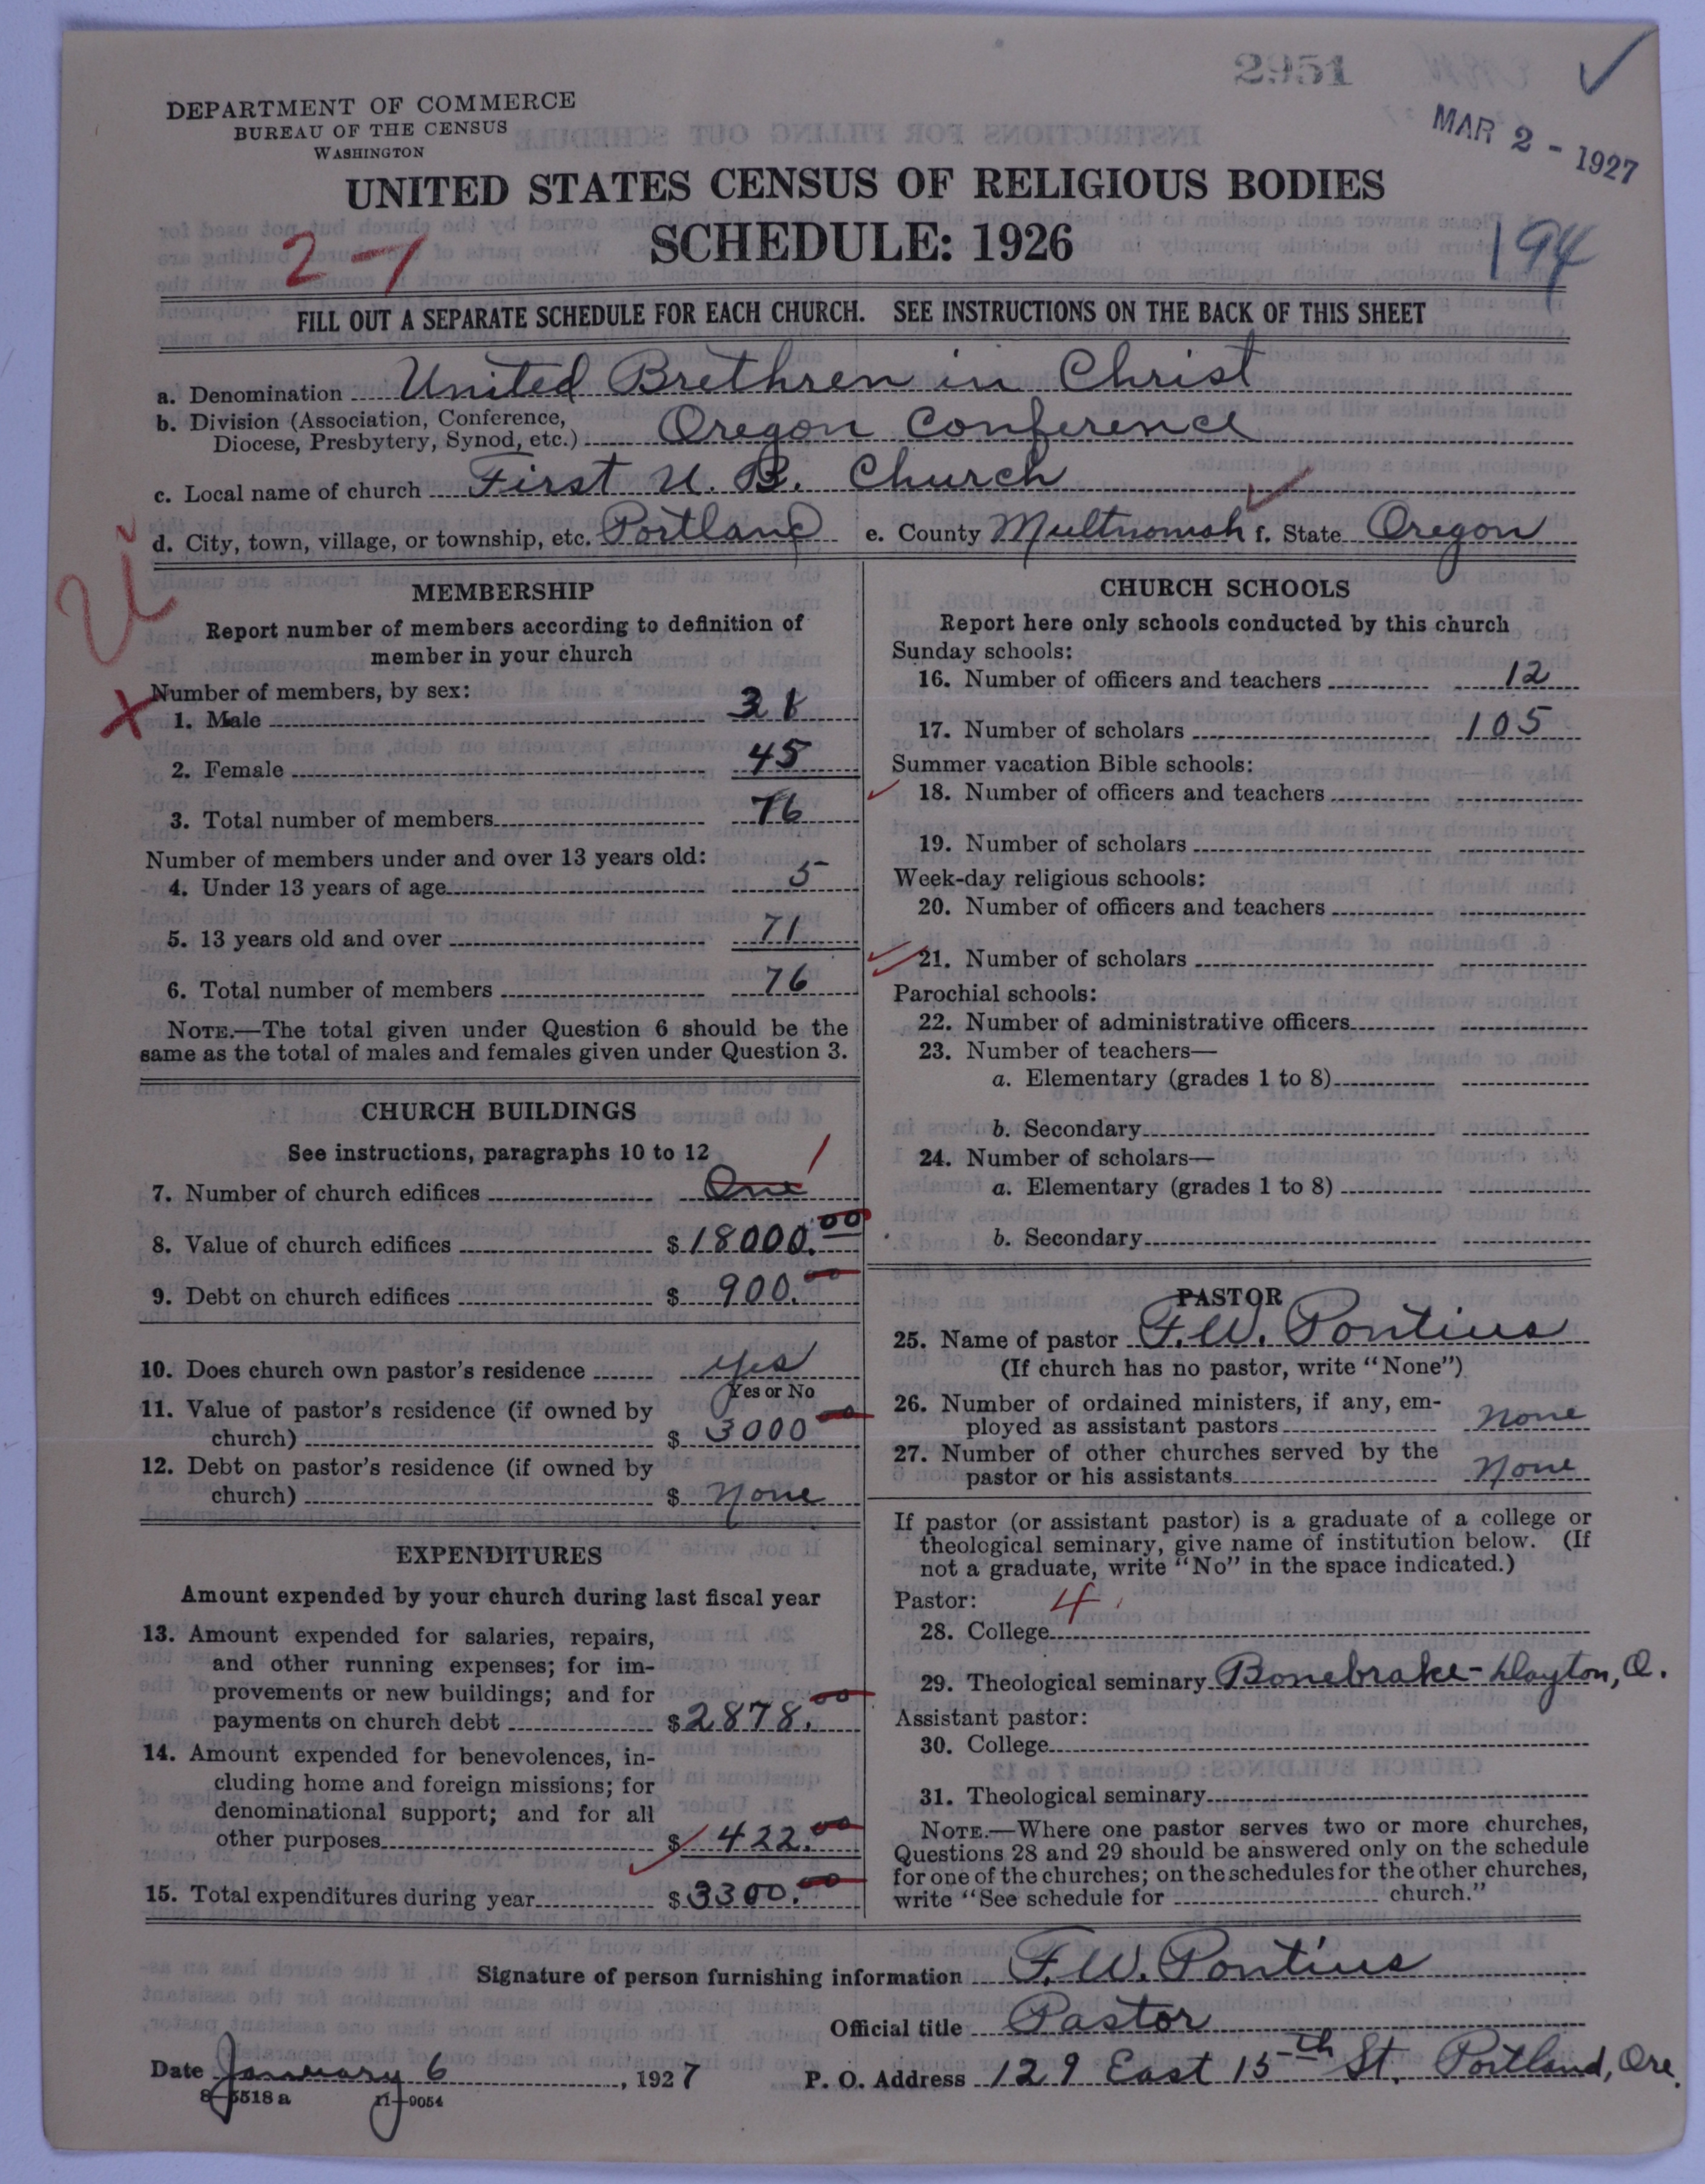 2951
MAR 2 - 1927
DEPARTMENT OF COMMERCE
BUREAU OF THE CENSUS
WASHINGTON
UNITED STATES CENSUS OF RELIGIOUS BODIES
SCHEDULE: 1926
2-1
194
FILL OUT A SEPARATE SCHEDULE FOR EACH CHURCH. SEE INSTRUCTIONS ON THE BACK OF THIS SHEET
a. Denomination United Brethren in Christ
b. Division (Association, Conference,
Diocese, Presbytery, Synod, etc.) Oregon Conference
c. Local name of church First U. B. Church
d. City, town, village, or township, etc. Portland e. County Multnomah f. State Oregon
MEMBERSHIP
Report number of members according to definition of
member in your church
Number of members, by sex:
1. Male
2. Female 45
3. Total number of members 76
Number of members under and over 13 years old:
4. Under 13 years of age 5
5. 13 years old and over 71
6. Total number of members 76
NOTE.—The total given under Question 6 should be the
same as the total of males and females given under Question 3.
CHURCH BUILDINGS
See instructions, paragraphs 10 to 12
7. Number of church edifices One 1
8. Value of church edifices $ 18000.00
9. Debt on church edifices $ 900.00
10. Does church own pastor's residence yes
Yes or No
11. Value of pastor's residence (if owned by
church) $ 3000 00
12. Debt on pastor's residence (if owned by
church) $ None
EXPENDITURES
Amount expended by your church during last fiscal year
13. Amount expended for salaries, repairs,
and other running expenses; for im-
provements or new buildings; and for
payments on church debt $ 2878.00
14. Amount expended for benevolences, in-
cluding home and foreign missions; for
denominational support; and for all
other purposes $ 422.00
15. Total expenditures during year $ 3300.00
CHURCH SCHOOLS
Report here only schools conducted by this church
Sunday schools:
16. Number of officers and teachers 12
17. Number of scholars 105
Summer vacation Bible schools:
18. Number of officers and teachers
19. Number of scholars
Week-day religious schools:
20. Number of officers and teachers
21. Number of scholars
Parochial schools:
22. Number of administrative officers
23. Number of teachers—
a. Elementary (grades 1 to 8)
b. Secondary
24. Number of scholars—
a. Elementary (grades 1 to 8)
b. Secondary
PASTOR
25. Name of pastor F. W. Pontius
(If church has no pastor, write "None")
26. Number of ordained ministers, if any, em-
ployed as assistant pastors None
27. Number of other churches served by the
pastor or his assistants None
If pastor (or assistant pastor) is a graduate of a college or
theological seminary, give name of institution below. (If
not a graduate, write "No" in the space indicated.)
Pastor: 4
28. College
29. Theological seminary Bonebrake - Dayton, O.
Assistant pastor:
30. College
31. Theological seminary
NOTE.—Where one pastor serves two or more churches,
Questions 28 and 29 should be answered only on the schedule
for one of the churches; on the schedules for the other churches,
write "See schedule for church."
Signature of person furnishing information F. W. Pontius
Official title Pastor
Date January 6, 1927 P. O. Address 129 East 15th St. Portland, Ore.
8-5518 a 11-9054